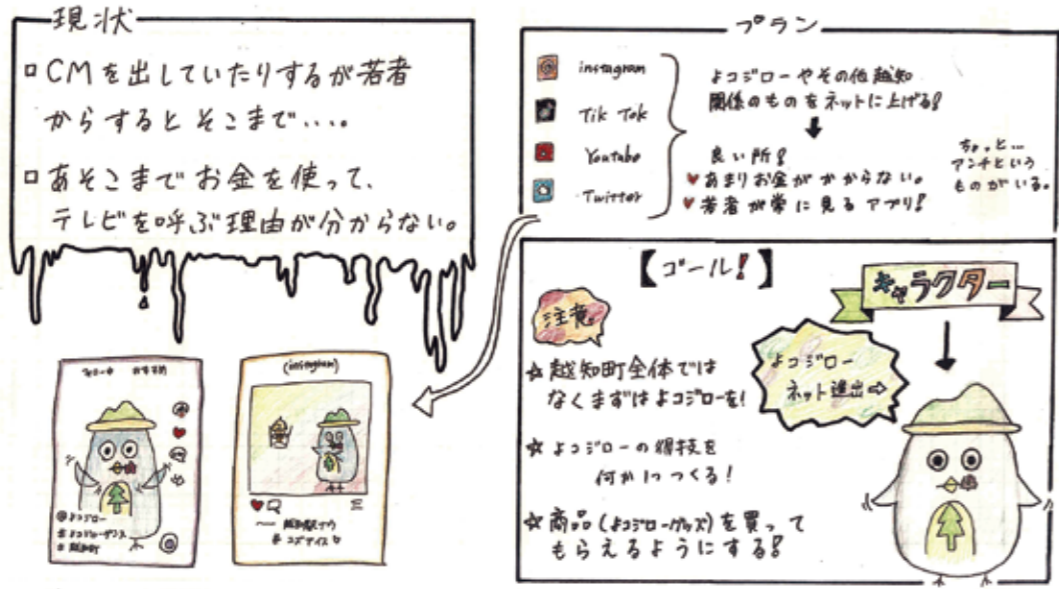 現状
CMを出していたりするが若者
からするとそこまで....。
あそこまでお金を使って、
テレビを呼ぶ理由が分からない。
プラン
instagram
Tik Tok
Youtube
Twitter
よコジローやその他越知
関係のものをネットに上げる!
良い所!
あまりお金がかからない。
若者が常に見るアプリ!
ちょっと...
アンチという
ものがいる。
【ゴール!】
注意
越知町全体では
なくまずはよコジローを!
よコジローの得技を
何か1つつくる!
商品(よコジローグッズ)を買って
もらえるようにする!
キャラクター
よコジロー
ネット進出⇨
おすすめ
@よコジロー
#よコジローダンス
#越知町
(instagram)